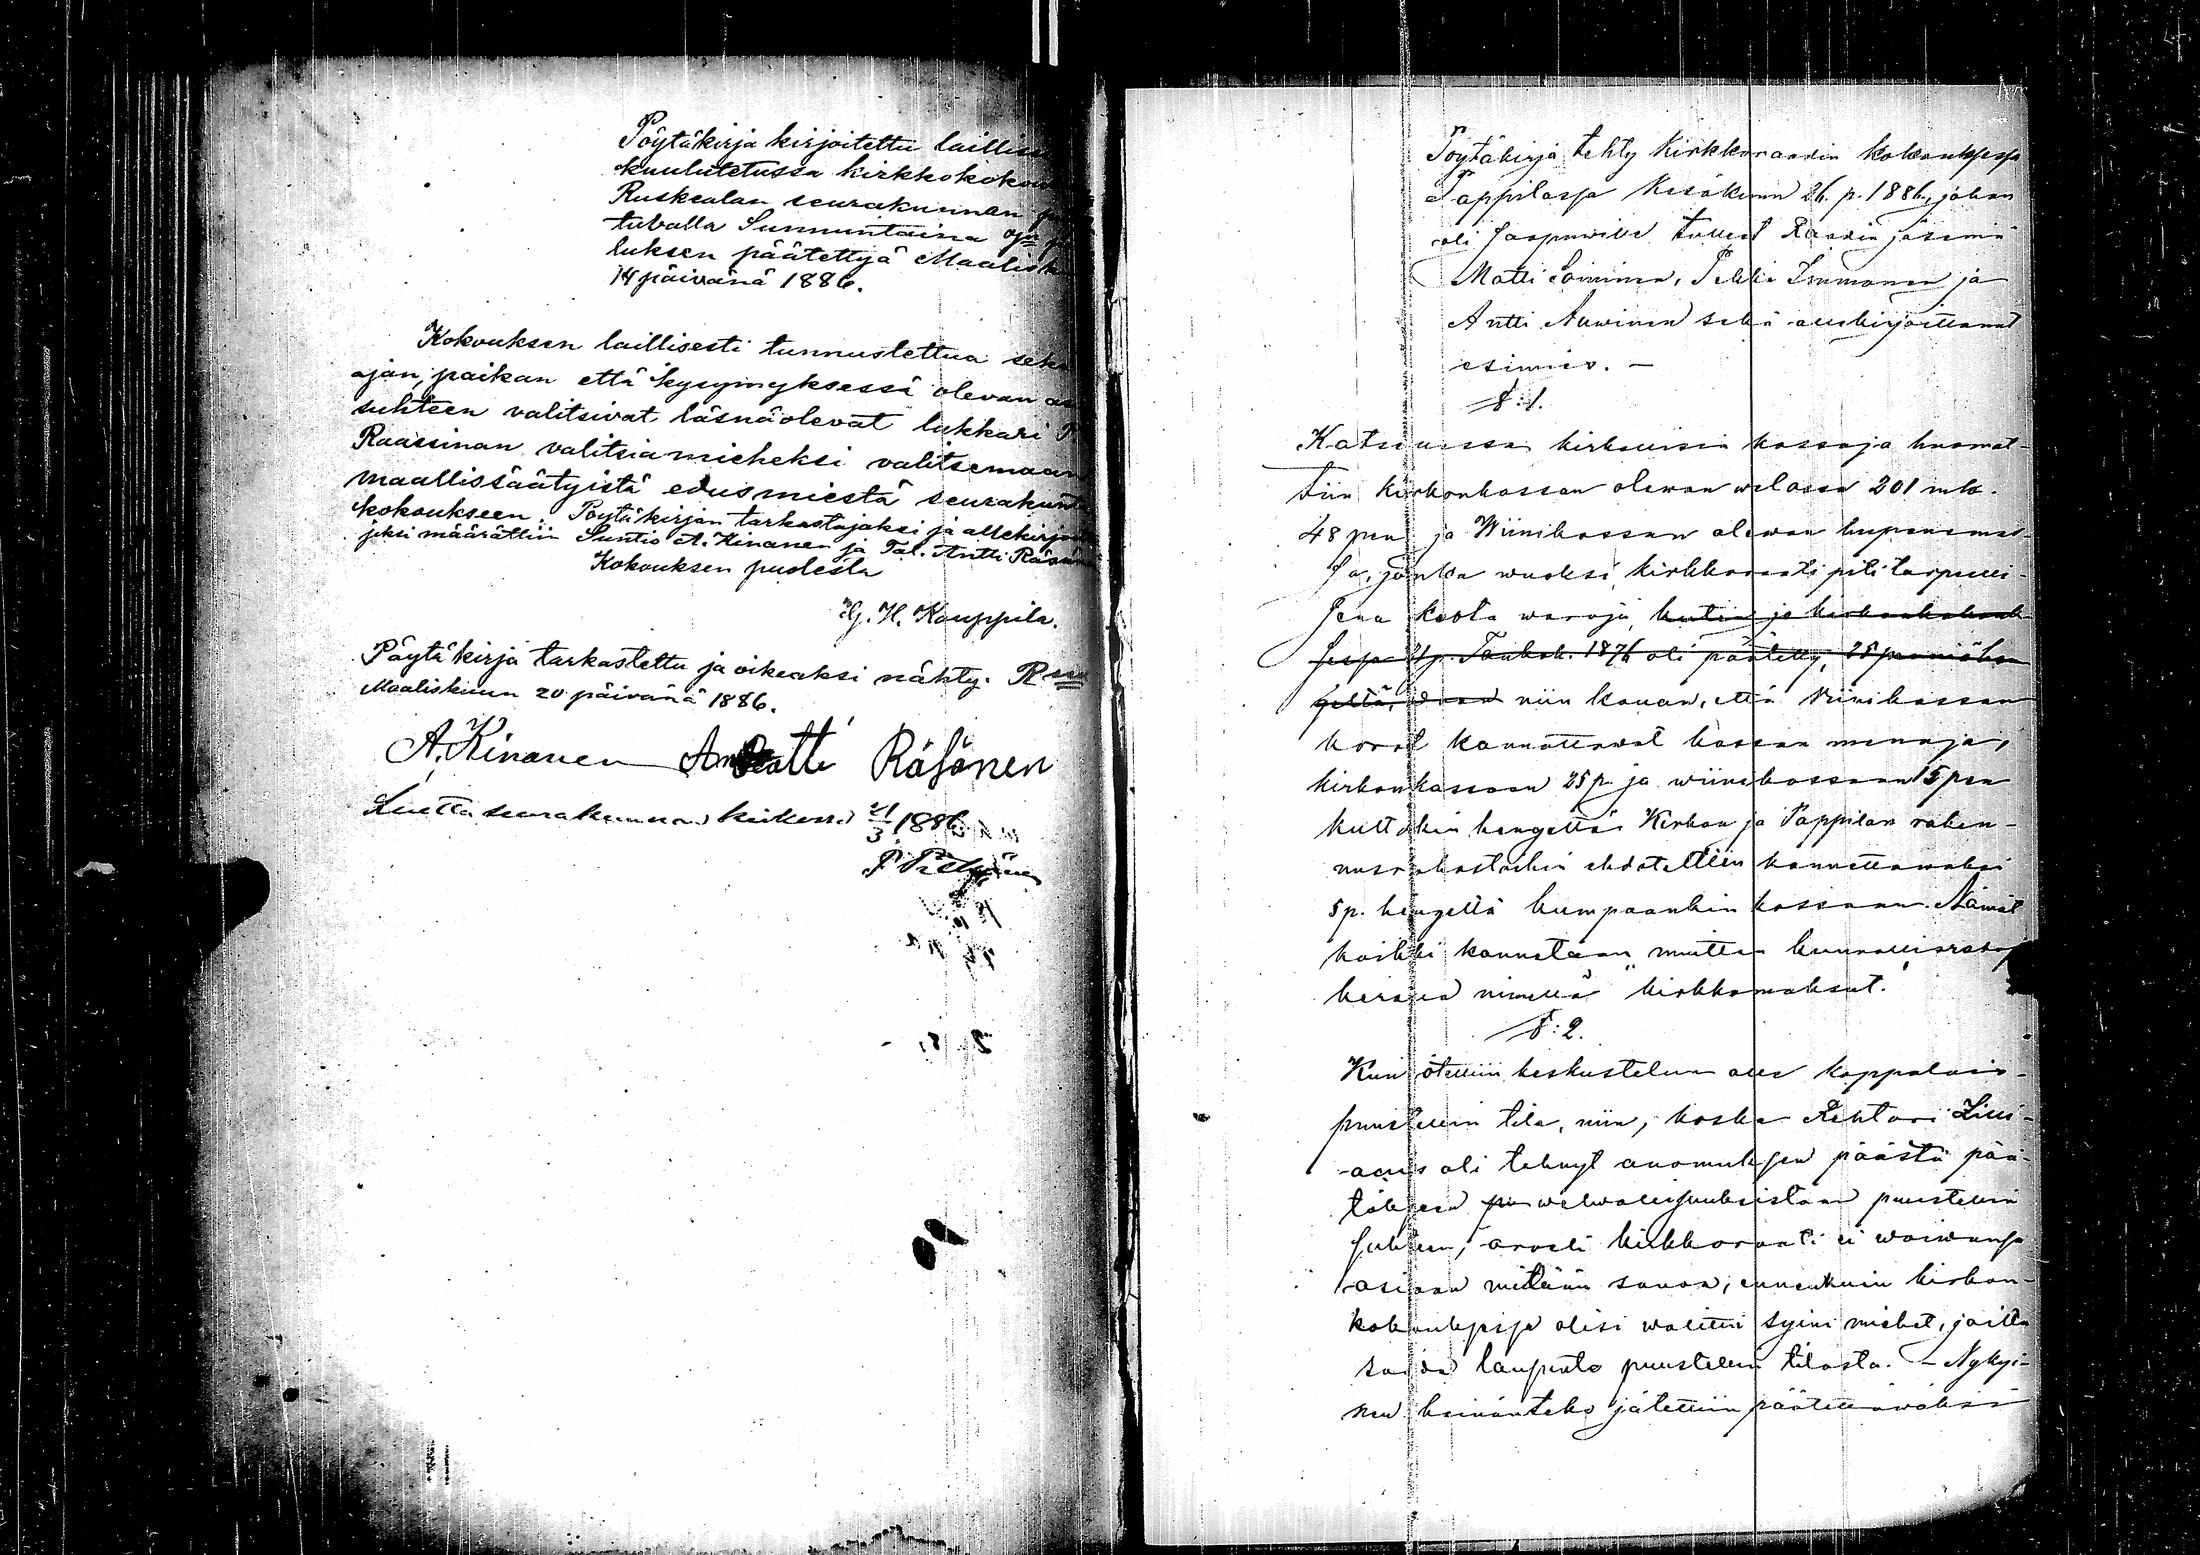 Pöytäkirja kirjoitettu laillis
kuulutetussa kirkkokokou
Ruskealan seurakunnan
tuvalla Sunnuntaina
luksen päätettyä Maalisk
14 päivänä 1886.
Kokouksen laillisesti tunnustettua sek
ajan, paikan että kysymyksessä olevan as
suhteen valitsivat läsnäolevat lukkari P
Raassinan valitsiamieheksi valitsemaan
maallissäätyistä edusmiestä seurakunta
kokoukseen. Pöytäkirjan tarkastajaksi ja allekirjoit
jeksi määrättiin Suntio A. Kinanen ja Tal. Antti Räsänen
Kokouksen puolesta
Hj. H. Kauppila.
Pöytäkirja tarkastettu ja oikeaksi nähty. R
Maaliskuun 20 päivänä 1886.
A. Kinanen Antti Räsänen
Luettu seurakunnan kirkossa 21/3 1886
P.
Pöytäkirja tehty Kirkkoraadin kokouksessa
Pappilassa Kesäkuun 26. p. 1886, johon
oli saapuville tulleet Raadin jäsenet
Matti Soininen, Pekka Immonen ja
Antti Auvinen sekä allekirjoittanut
esimies. —
§:1.
Katsauessa kirkollisia kassoja huomat-
tiin kirkonkassan olewan welassa 201 mk.
48 pen ja Wiinikassan olewan hupenemas-
sa, jonka wuoksi kirkkoraati piti tarpeelli-
sena koota waroja, kuten jo kirkonkokouk-
sessa p. Toukok. 1876 oli päätetty, 25 penniä
gelta, niin kauan, että Wiinikassan
korot kannattawat kassan menoja,
kirkonkassaan 25 p. ja wiinikassaan 15 pen
kultakin hengeltä. Kirkon ja Pappilan raken-
nusrahastoihin ehdotettiin kannettawaksi
5 p. hengeltä kumpaankin kassaan. Nämät
kaikki kannetaan muitten kunnallisrahoj
kerassa nimellä "kirkkomaksut."
§:2.
Kun otettiin keskusteluun alle kappalais-
puustellin tila, niin, koska Rehtori Lilli-
aeus oli tehnyt anomuksen päästä pää-
töksessä welwollisuuksistaan puustellin
suhteen, arveli kirkkoraati ei woiwansa
asiaan mitään sanoa, ennenkuin kirkon-
kokouksessa olisi walittu syyni miehet, joilta
saada lausunto puustellin tilasta. — Nykyi-
nen heinänteko jätettiin päätettäwäksi